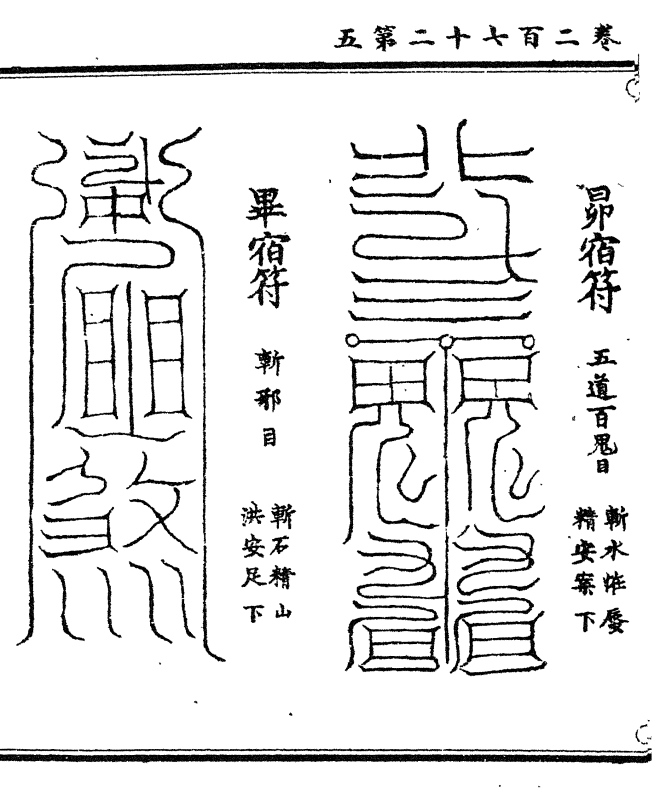 卷二百七十二第五
昴宿符
五道百鬼目
斬水
精安案下
畢宿符
斬邪目
斬石精山
洪安足下